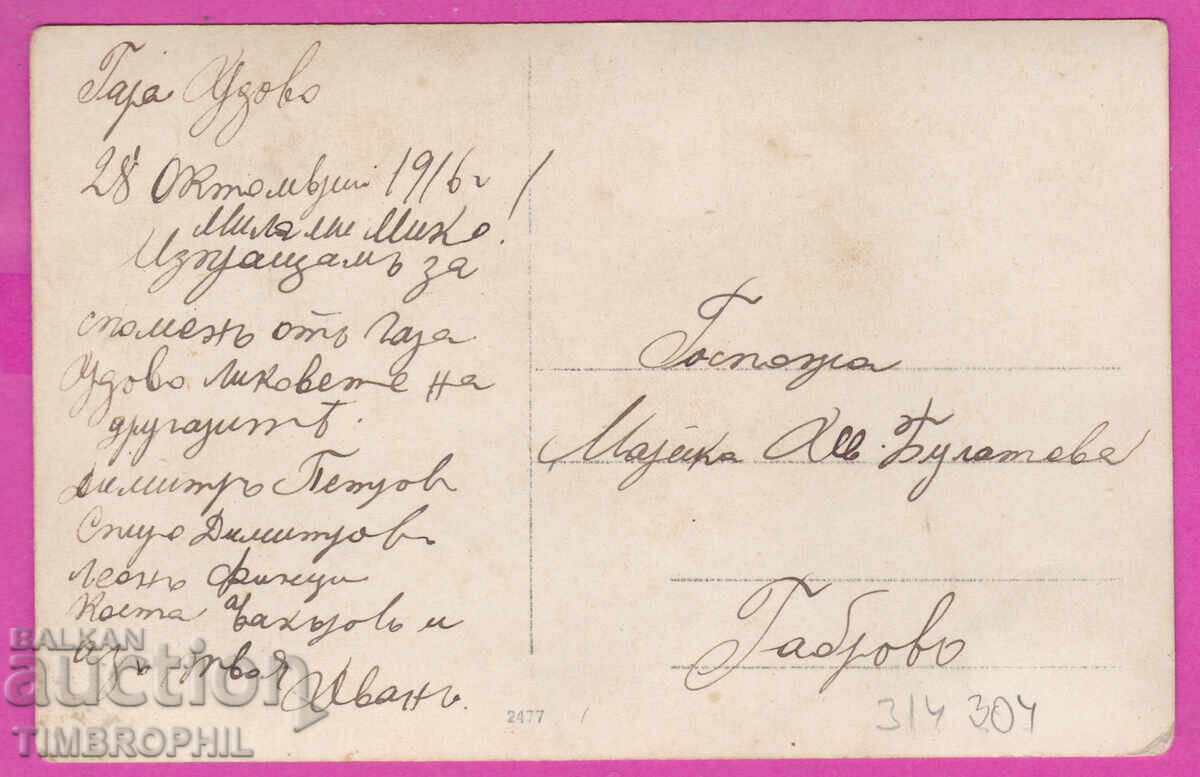 Гара Удово
28 Октомврий 1916 г /
Мила ми Мико.
Изпращамъ за
споменъ отъ гара
Удово ликовете на
другаритѣ.
Димитръ Петров
Спиро Димитровъ
Леонъ Финци
Коста Чакъровъ и
твоя
Иванъ.
Госпожа
Марийка Хр. Булатева
Габрово
2477 /
314 304
BALKAN
auction
TIMBROPHIL